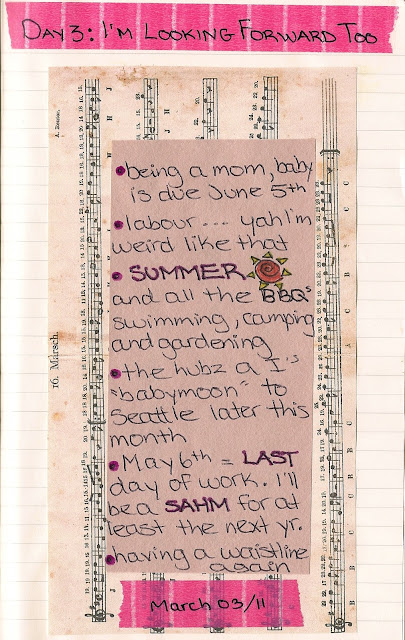 DAY 3: I'M LOOKING FORWARD TOO
A. Reseau.
16. Marsch
• being a mom, baby
is due June 5th
• labour ... yah I'm
weird like that
• SUMMER
and all the BBQ's
swimming, camping
and gardening
• the hubz a I's
"babymoon" to
Seattle later this
month
• May 6th = LAST
day of work. I'll
be a SAHM for at
least the next yr.
• having a waistline
again
March 03/11